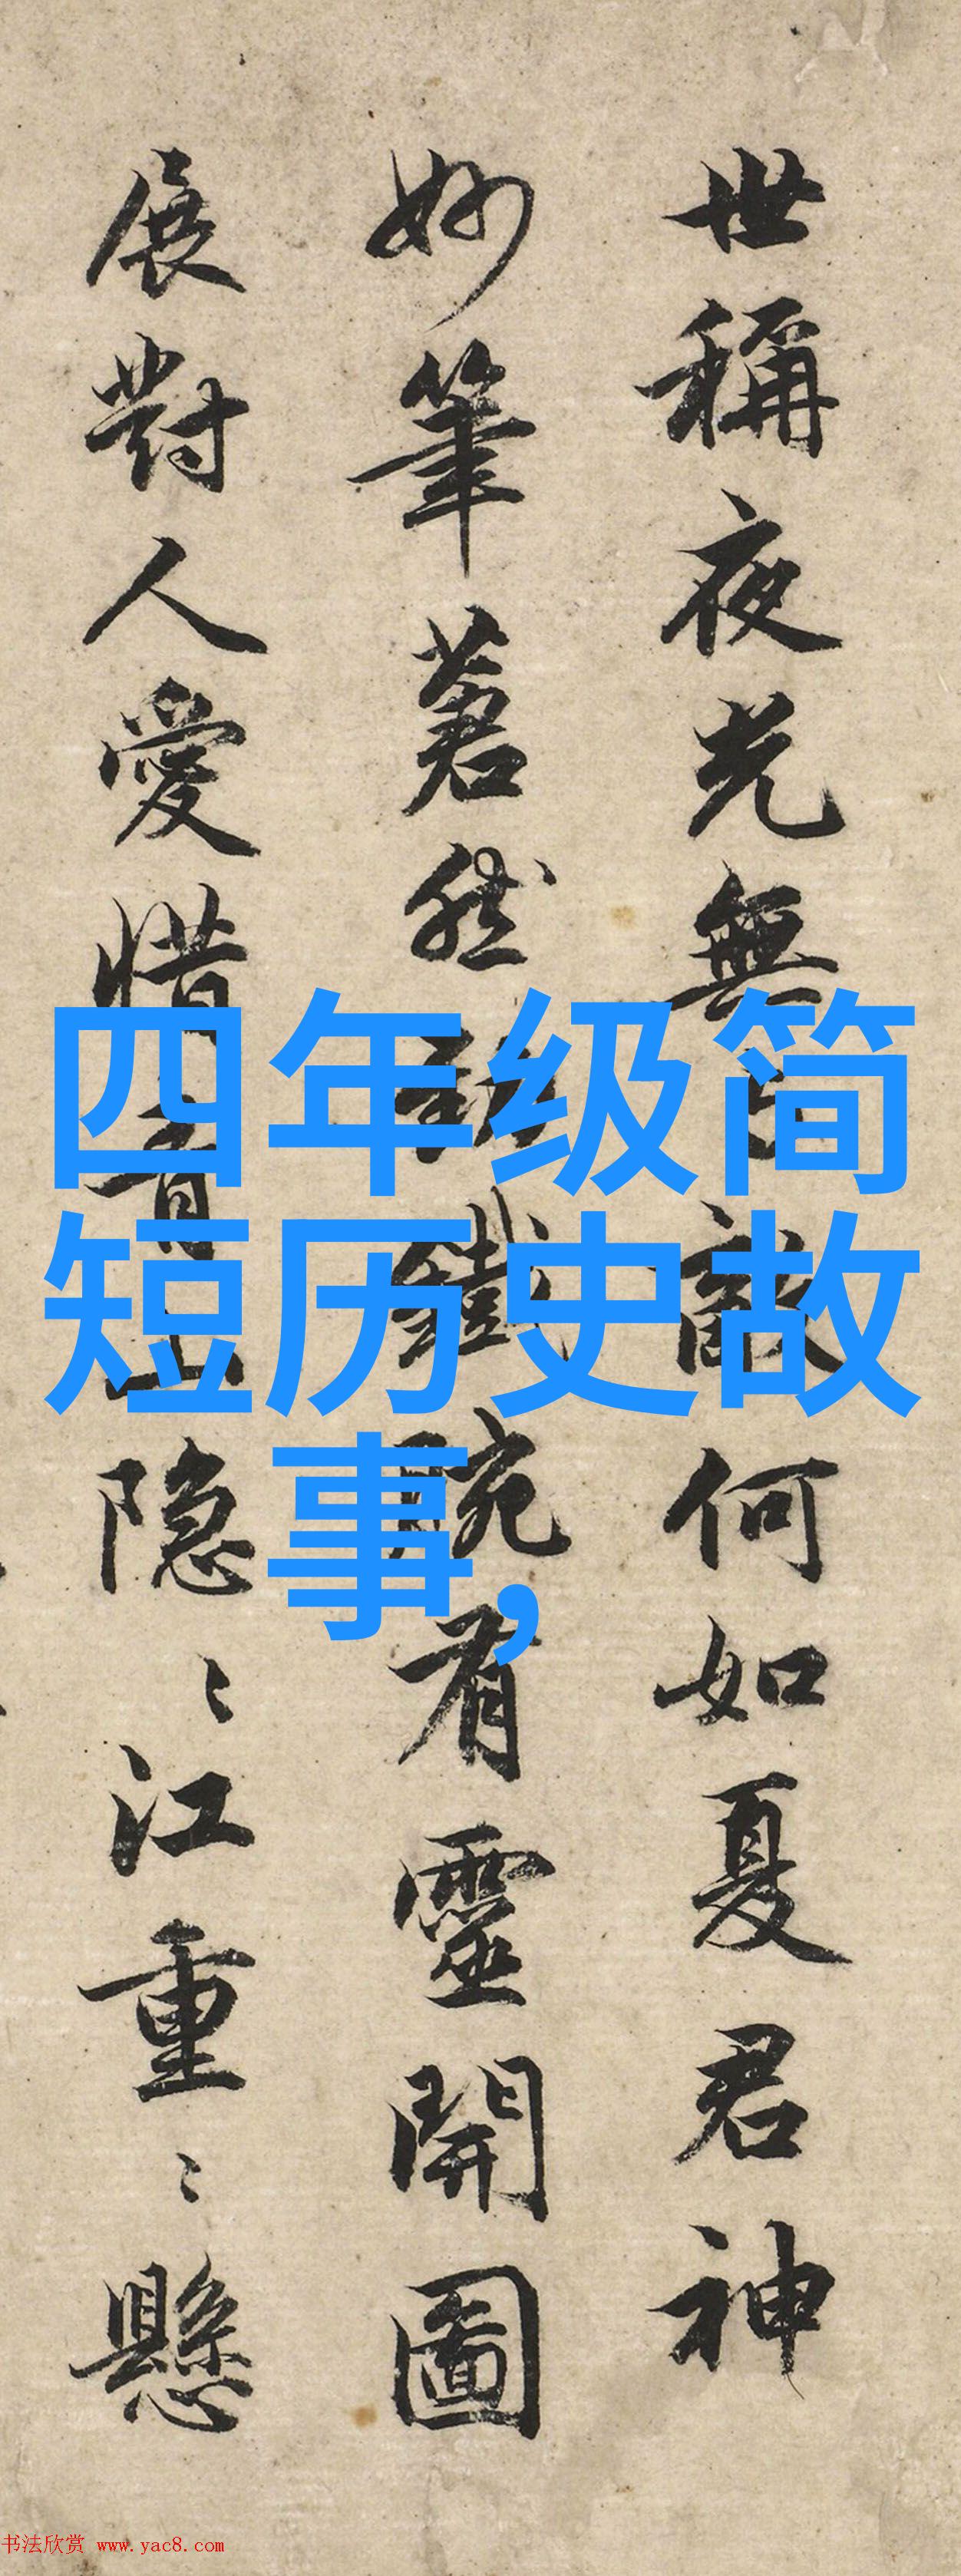 世稱夜光無敵何如夏君神
妙筆蒼然鐵腕有靈開圖
展對人愛惜青山隐〻江重〻懸
四年级简
短历史故
事,
书法欣赏 www.yac8.com